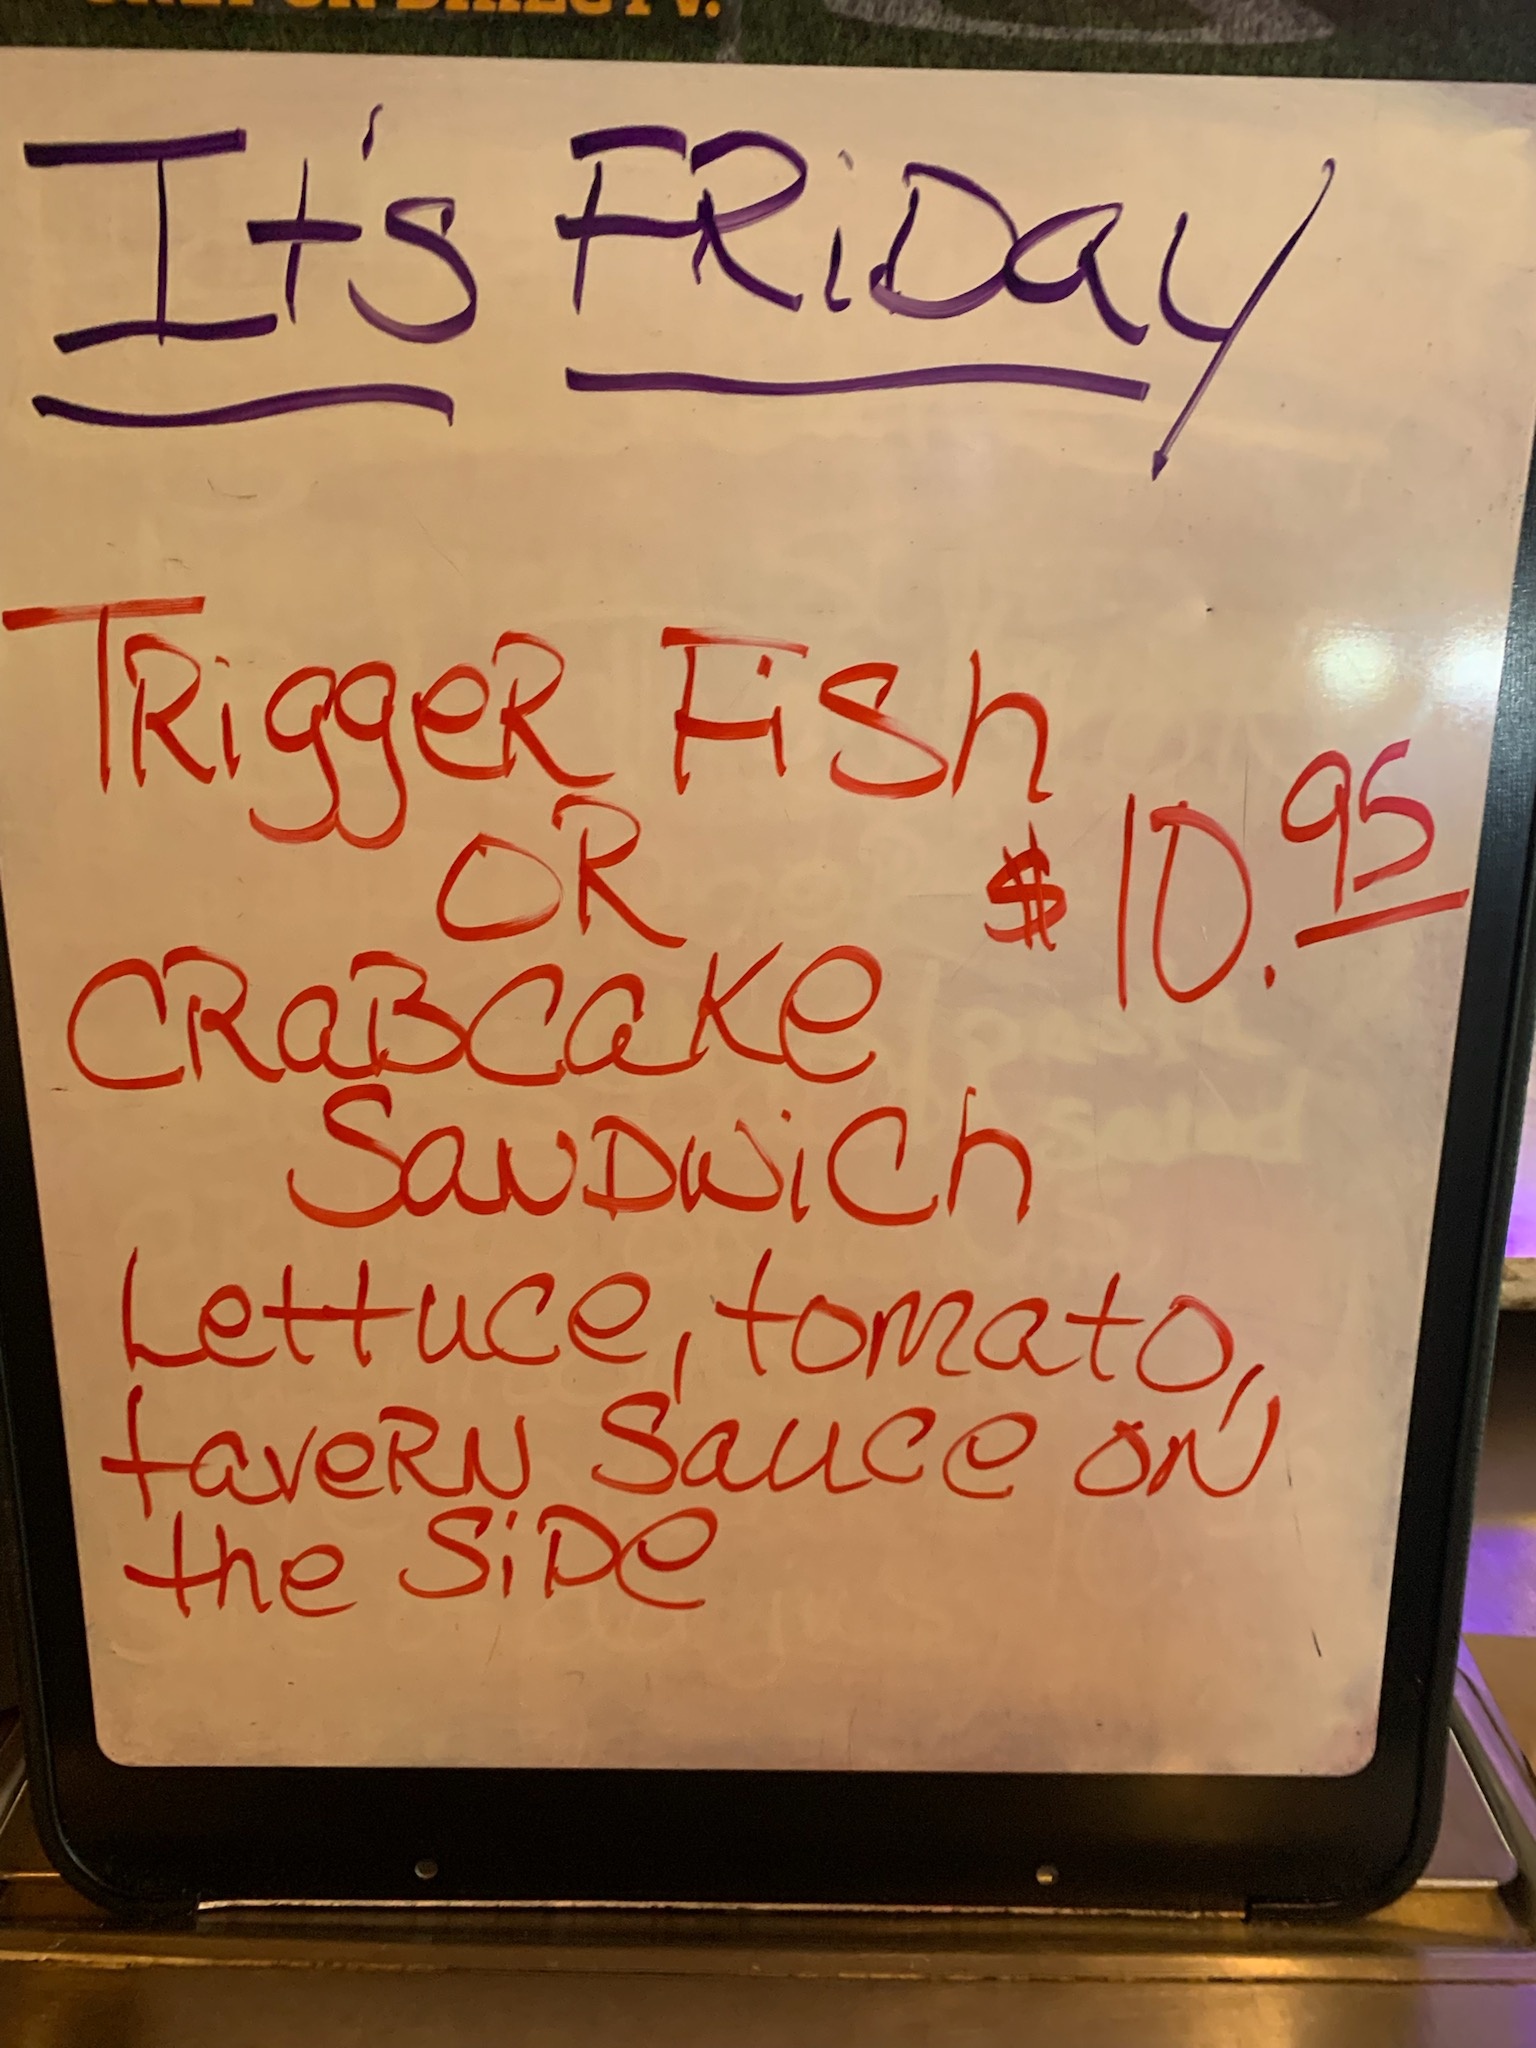 ON DIRECTV.
It's FRiDay
TRiggeR Fish
OR
$10.95
CRaBcake
SaNDwich
Lettuce, tomato,
taveRN Sauce oN
the SiDe